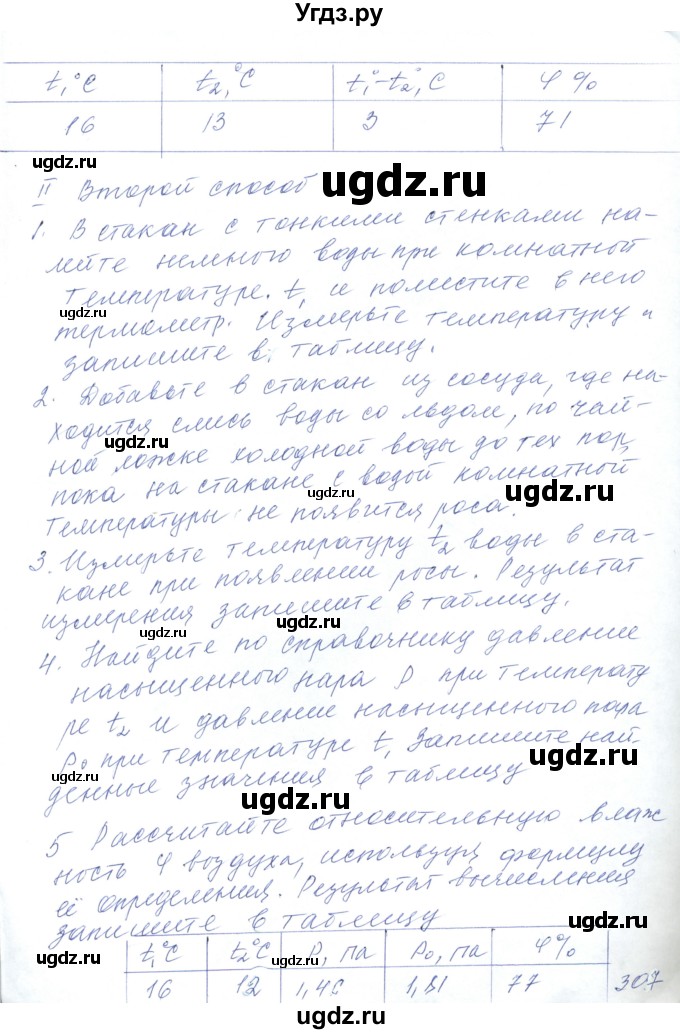 Угдз.ру
ugdz.ru
t₁°C t₂,°C t₁°-t₂°,C φ %
16 13 3 71
ugdz.ru
II Второй способ
ugdz.ru
1. В стакан с тонкими стенками на-
лейте немного воды при комнатной
температуре. t₁ и поместите в него
термометр. Измерьте температуру и
ugdz.ru
запишите в таблицу.
2. Добавьте в стакан из сосуда, где на-
ходится смесь воды со льдом, по чай-
ugdz.ru
ной ложке холодной воды до тех пор,
пока на стакане с водой комнатной
ugdz.ru
ugdz.ru
температуры не появится роса.
3. Измерьте температуру t₂ воды в ста-
кане при появлении росы. Результат
ugdz.ru
измерения запишите в таблицу.
ugdz.ru
4. Найдите по справочнику давление
насыщенного пара P при температу
ре t₂ и давление насыщенного пара
ugdz.ru
P₀ при температуре t₁ Запишите най
денные значения в таблицу
ugdz.ru
5 Рассчитайте относительную влаж
ность φ воздуха, используя формулу
её определения. Результат вычисления
ugdz.ru
запишите в таблицу
ugdz.ru
t₁°C t₂°C P, па P₀, па φ%
ugdz.ru
16 12 1,40 1,81 77
307
ugdz.ru
ugdz.ru